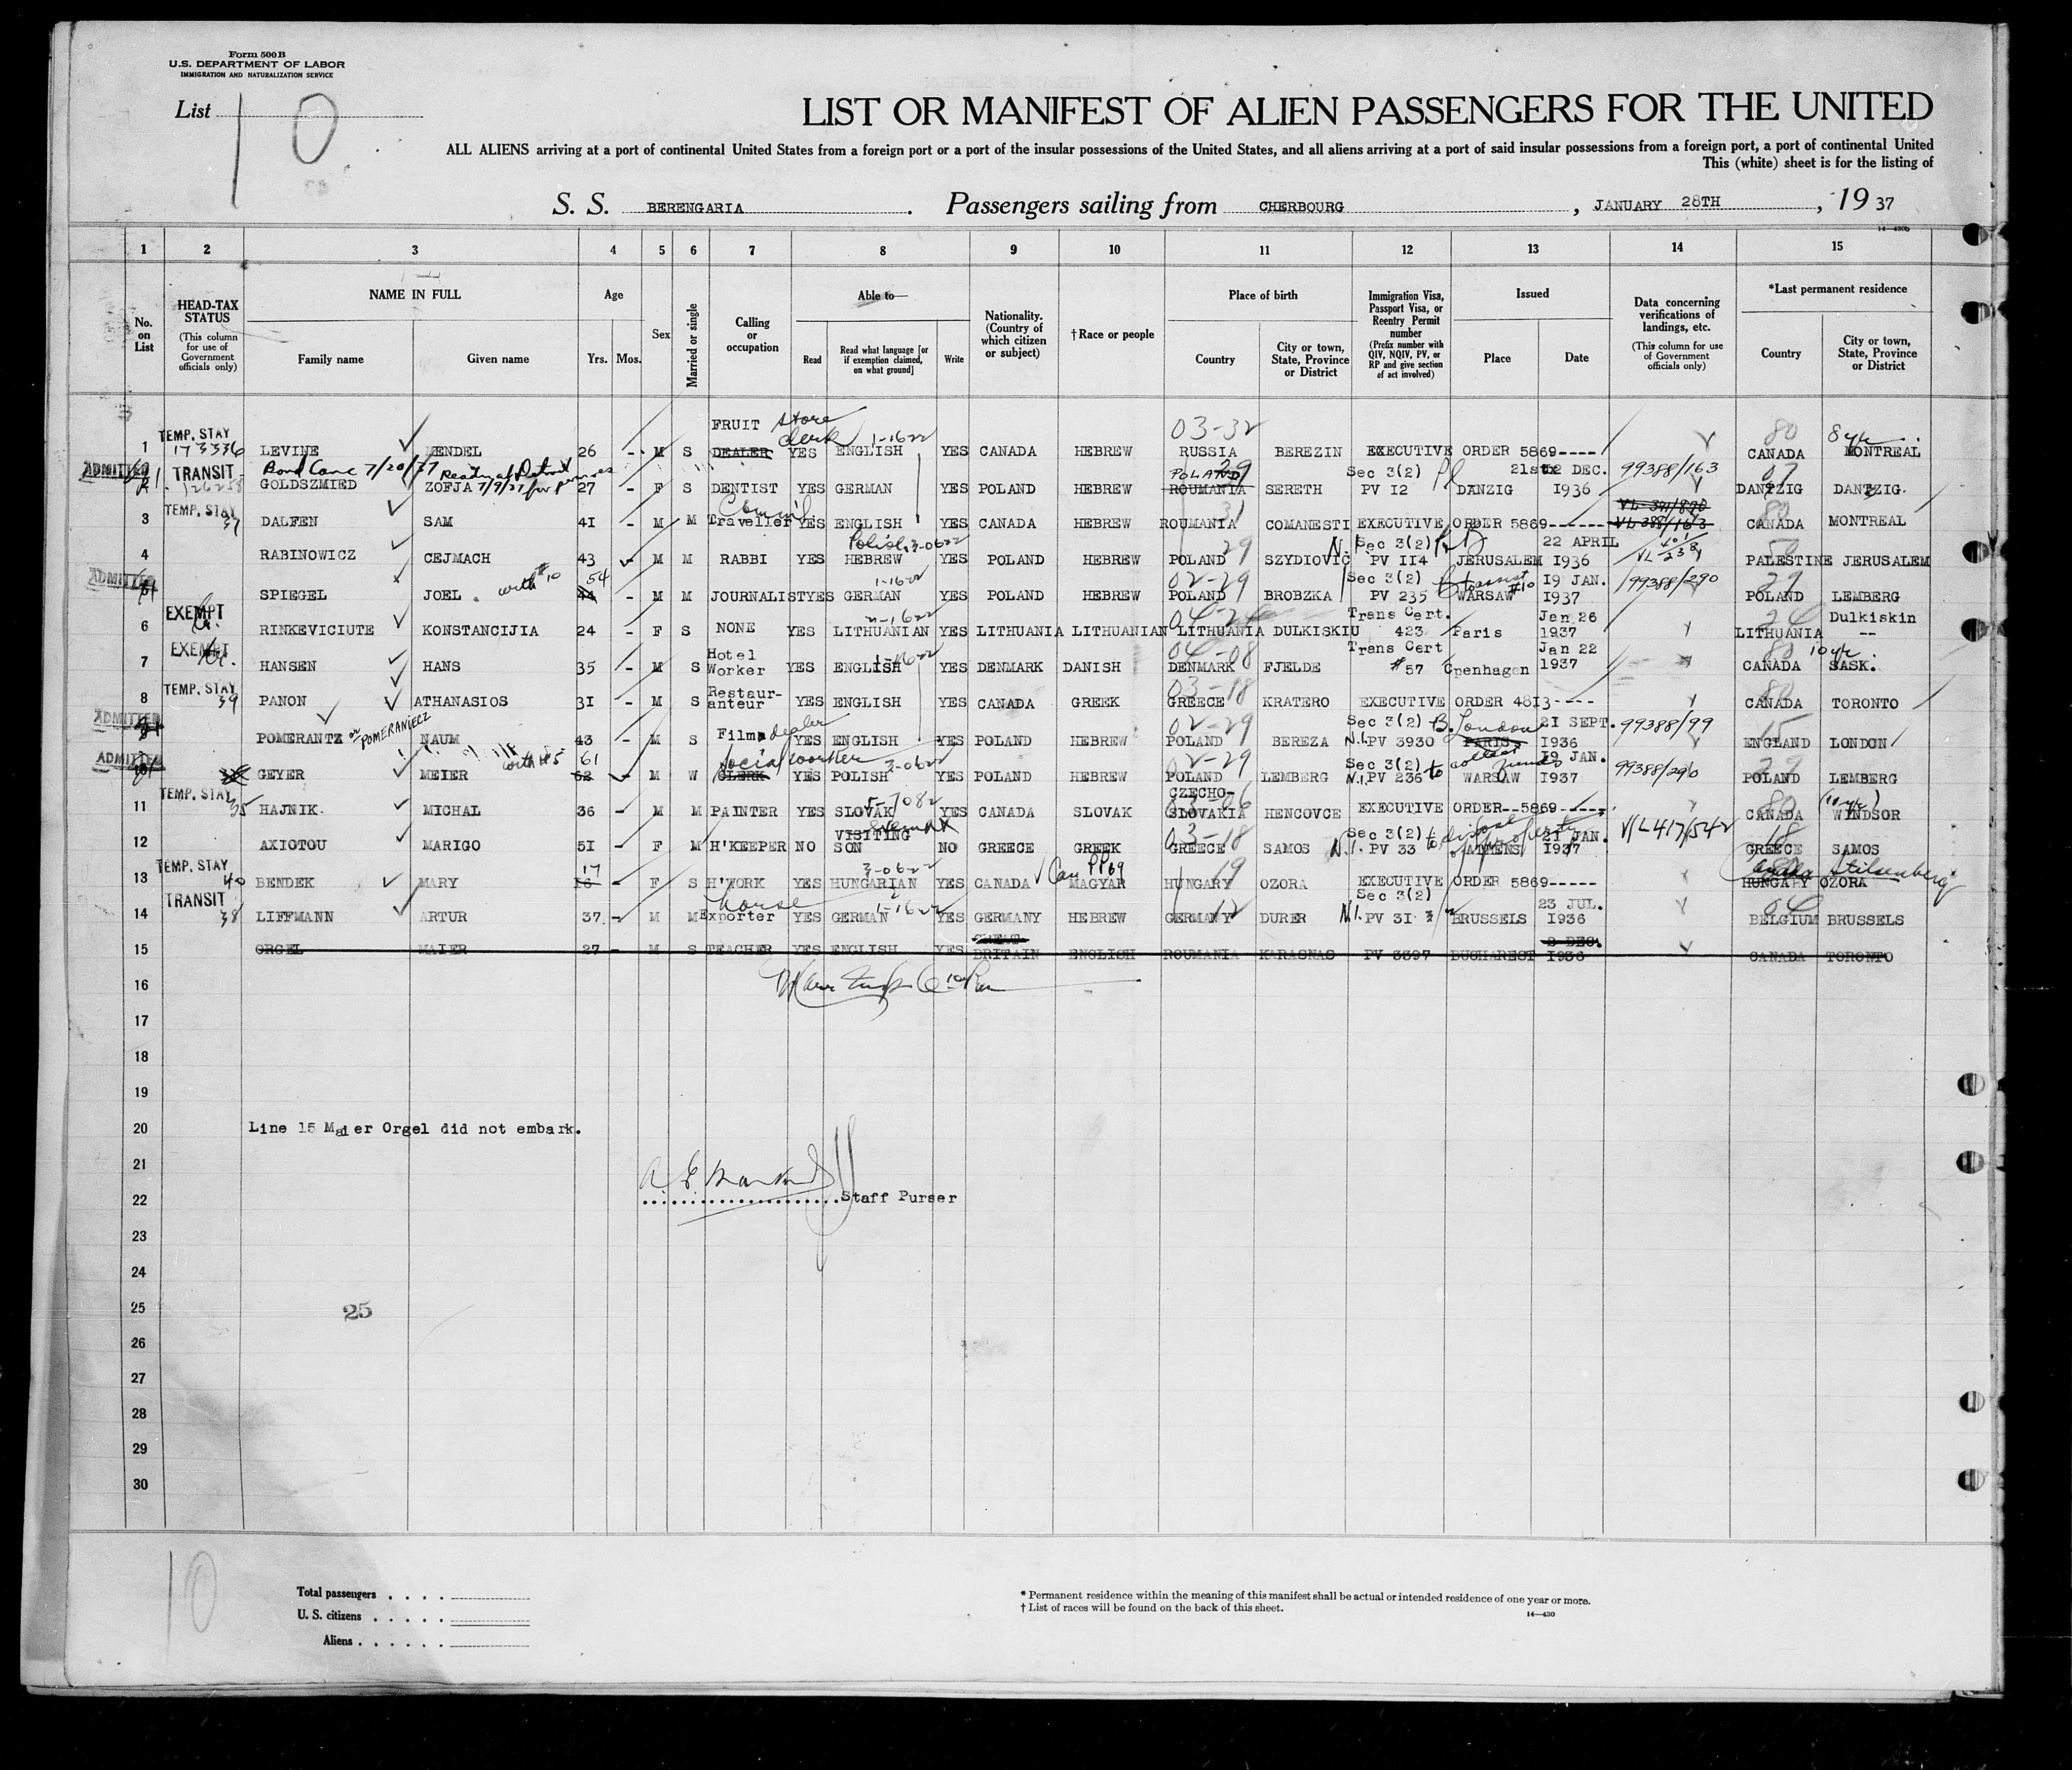 Form 500 B
U.S. DEPARTMENT OF LABOR
IMMIGRATION AND NATURALIZATION SERVICE
List 10
LIST OR MANIFEST OF ALIEN PASSENGERS FOR THE UNITED
ALL ALIENS arriving at a port of continental United States from a foreign port or a port of the insular possessions of the United States, and all aliens arriving at a port of said insular possessions from a foreign port, a port of continental United
This (white) sheet is for the listing of
S. S. BERENGARIA. Passengers sailing from CHERBOURG, JANUARY 28TH, 19 37
14—430b
1 2 3 4 5 6 7 8 9 10 11 12 13 14 15
No. on List
HEAD-TAX STATUS (This column for use of Government officials only)
NAME IN FULL
Family name Given name
Age
Yrs. Mos.
Sex
Married or single
Calling or occupation
Able to—
Read Read what language [or if exemption claimed, on what ground] Write
Nationality. (Country of which citizen or subject)
†Race or people
Place of birth
Country City or town, State, Province or District
Immigration Visa, Passport Visa, or Reentry Permit number (Prefix number with QIV, NQIV, PV, or RP and give section of act involved)
Issued
Place Date
Data concerning verifications of landings, etc. (This column for use of Government officials only)
*Last permanent residence
Country City or town, State, Province or District
FRUIT store clerk 1-1622 03-32 80 8 yr.
1 TEMP. STAY 173336 LEVINE MENDEL 26 - M S DEALER YES ENGLISH YES CANADA HEBREW RUSSIA BEREZIN EXECUTIVE ORDER 5869----- CANADA MONTREAL
ADMITTED TRANSIT Bond Canc 7/20/37 POLAND 29 Sec 3(2) DEC. 99388/163 07
2 GOLDSZMIED ZOFJA 7/9/37 27 - F S DENTIST YES GERMAN YES POLAND HEBREW ROUMANIA SERETH PV 12 DANZIG 1936 DANTZIG DANTZIG.
TEMP. STAY 37 31 VL 388/163 80
3 DALFEN SAM 41 - M M Traveller YES ENGLISH YES CANADA HEBREW ROUMANIA COMANESTI EXECUTIVE ORDER 5869------ CANADA MONTREAL
Polish 3-0622 29 N.I. Sec 3(2) 22 APRIL
4 RABINOWICZ CEJMACH 43 M M RABBI YES HEBREW YES POLAND HEBREW POLAND SZYDIOVIC PV 114 JERUSALEM 1936 PALESTINE JERUSALEM
ADMITTED with #10 54 1-1622 02-29 Sec 3(2) 19 JAN. 99388/290 29
5 SPIEGEL JOEL 44 - M M JOURNALIST YES GERMAN YES POLAND HEBREW POLAND BROBZKA PV 235 WARSAW 1937 POLAND LEMBERG
EXEMPT Trans Cert. Jan 26 24 Dulkiskin
6 RINKEVICIUTE KONSTANCIJIA 24 - F S NONE YES LITHUANIAN YES LITHUANIA LITHUANIAN LITHUANIA DULKISKIU 423 Paris 1937 LITHUANIA --
EXEMPT Hotel 1-1622 04-08 Trans Cert Jan 22 80 10 yr.
7 HANSEN HANS 35 - M S Worker YES ENGLISH YES DENMARK DANISH DENMARK FJELDE #57 Cpenhagen 1937 CANADA SASK.
TEMP. STAY 39 Restaur- 03-18 80
8 PANON ATHANASIOS 31 - M S anteur YES ENGLISH YES CANADA GREEK GREECE KRATERO EXECUTIVE ORDER 4813---- CANADA TORONTO
ADMITTED or POMERANIECZ dealer 02-29 Sec 3(2) B. London 21 SEPT. 99388/99 15
9 POMERANTZ NAUM 43 - M S Films YES ENGLISH YES POLAND HEBREW POLAND BEREZA N.I. PV 3930 PARIS 1936 ENGLAND LONDON
ADMITTED with #5 61 social worker 3-0622 02-29 Sec 3(2) to collect funds 19 JAN. 99388/290 29
10 GEYER MEIER 62 M W CLERK YES POLISH YES POLAND HEBREW POLAND LEMBERG N.I. PV 236 WARSAW 1937 POLAND LEMBERG
TEMP. STAY 35 CZECHO- 80 (10 yr)
11 HAJNIK MICHAL 36 - M M PAINTER YES SLOVAK YES CANADA SLOVAK SLOVAKIA HENCOVCE EXECUTIVE ORDER--5869------ CANADA WINDSOR
VISITING 03-18 Sec 3(2) to dispose of property 21 JAN. V/L 417/542 18
12 AXIOTOU MARIGO 51 - F M H'KEEPER NO SON NO GREECE GREEK GREECE SAMOS N.I. PV 33 ATHENS 1937 GREECE SAMOS
TEMP. STAY 40 17 3-0622 Can PP 69 19 Canada
13 BENDEK MARY 16 - F S H'WORK YES HUNGARIAN YES CANADA MAGYAR HUNGARY OZORA EXECUTIVE ORDER 5869----- HUNGARY OZORA
TRANSIT 38 horse 1-1622 12 Sec 3(2) 23 JUL. 04
14 LIFFMANN ARTUR 37 - M M Exporter YES GERMAN YES GERMANY HEBREW GERMANY DURER N.I. PV 31 BRUSSELS 1936 BELGIUM BRUSSELS
GREAT 8 DEC.
15 ORGEL MAIER 27 - M S TEACHER YES ENGLISH YES BRITAIN ENGLISH ROUMANIA KARASNAS PV 3397 BUCHAREST 1936 CANADA TORONTO
16
17
18
19
20 Line 15 Maier Orgel did not embark.
21
22 Staff Purser
23
24
25 25
26
27
28
29
30
10
Total passengers
U. S. citizens
Aliens
* Permanent residence within the meaning of this manifest shall be actual or intended residence of one year or more.
† List of races will be found on the back of this sheet.
14—430